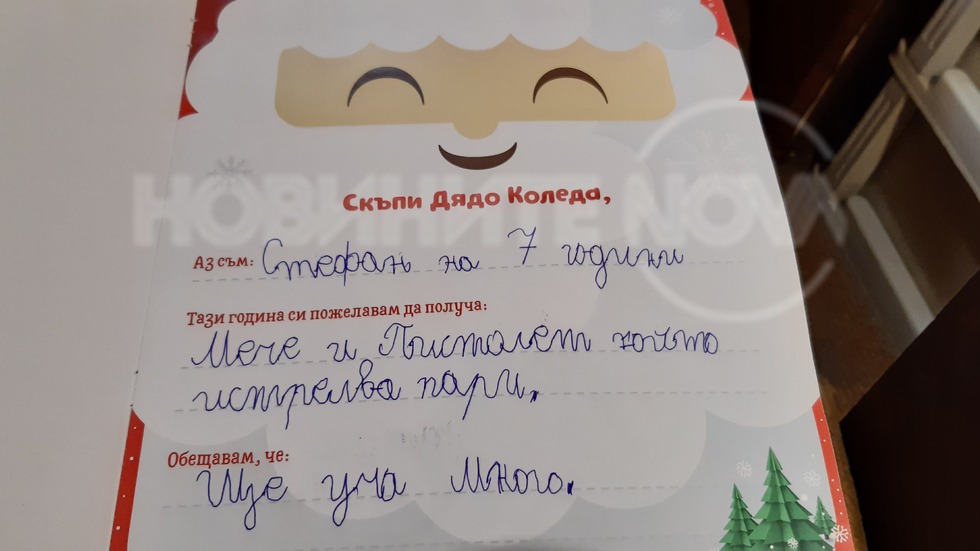 Скъпи Дядо Коледа,
Аз съм: Стефан на 7 години
Тази година си пожелавам да получа:
Мече и Пистолет който
истрелва пари.
Обещавам, че:
Ще уча много.
НОВИНИТЕ NOVA